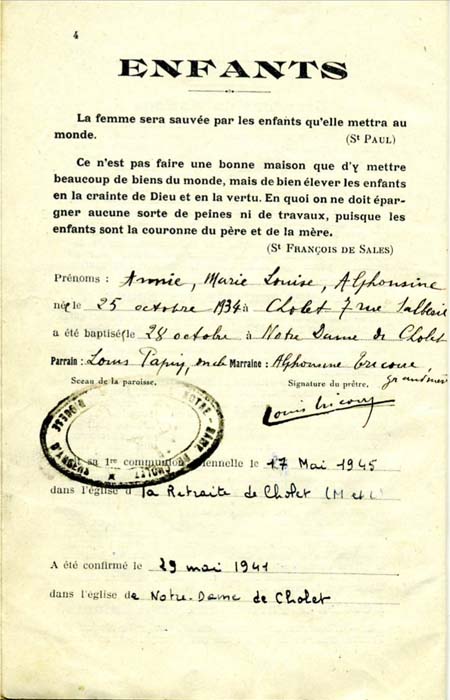 4
ENFANTS
La femme sera sauvée par les enfants qu'elle mettra au
monde.
(St PAUL)
Ce n'est pas faire une bonne maison que d'y mettre
beaucoup de biens du monde, mais de bien élever les enfants
en la crainte de Dieu et en la vertu. En quoi on ne doit épar-
gner aucune sorte de peines ni de travaux, puisque les
enfants sont la couronne du père et de la mère.
(St FRANÇOIS DE SALES)
Prénoms : Annie, Marie Louise, Alphonsine
née le 25 octobre 1934 à Cholet 7 rue
a été baptisée le 28 octobre à Notre Dame de Cholet
Parrain : Louis Papin, oncle Marraine : Alphonsine Tricoire,
grand'mère
Sceau de la paroisse. Signature du prêtre,
Louis Tricoire
NOTRE-DAME DE CHOLET
sa 1re communion solennelle le 17 Mai 1945
dans l'église d la Retraite de Cholet (M et L)
A été confirmé le 29 mai 1941
dans l'église de Notre-Dame de Cholet